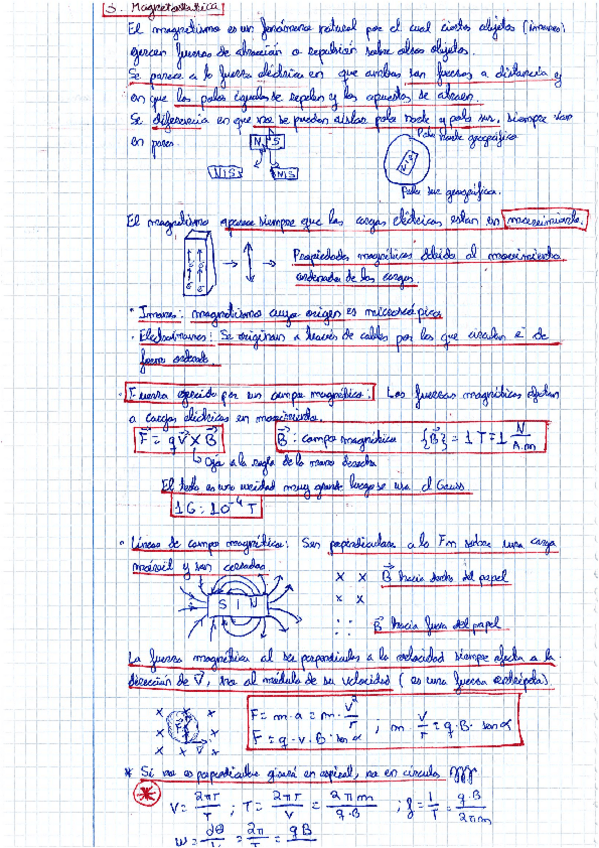 5. Magnetostática
El magnetismo es un fenómeno natural por el cual ciertos objetos (imanes)
ejercen fuerzas de atracción o repulsión sobre otros objetos.
Se parece a la fuerza eléctrica en que ambas son fuerzas a distancia y
en que los polos iguales se repelen y los opuestos se atraen.
Se diferencia en que no se pueden aislar polo norte y polo sur, siempre van
en pares.
N S
Polo norte geográfico
N S
N S
N S
Polo sur geográfico.
El magnetismo aparece siempre que las cargas eléctricas estan en movimiento.
Propiedades magnéticas debida al movimiento
ordenado de las cargas
· Imanes: magnetismo cuyo origen es microscópico
· Electroimanes: Se originan a través de cables por los que circulan e⁻ de
forma ordenada
· Fuerza ejercida por un campo magnético. Las fuerzas magnéticas afectan
a cargas eléctricas en movimiento.
F⃗ = q v⃗ x B⃗
B⃗: campo magnético {B⃗} = 1 T = 1 N/A.m
Ojo a la regla de la mano derecha
El tesla es una unidad muy grande luego se usa el Gauss
1G = 10⁻⁴ T
· Líneas de campo magnético: Son perpendiculares a la Fm sobre una carga
móvil y son cerradas
S I N
x x B⃗ hacia dentro del papel
x x
: : B⃗ hacia fuera del papel
La fuerza magnética al ser perpendicular a la velocidad siempre afecta a la
dirección de v⃗, no al módulo de su velocidad (es una fuerza centrípeta)
x x x
x x
x x v⃗ x
F = m · a = m · v²/r
F = q · v · B · sen α ; m · v/r = q · B · sen α
* Si no es perpendicular girará en espiral, no en círculos
*
V = 2πr/T ; T = 2πr/V = 2πm/q·B ; f = 1/T = q·B/2πm
w = dθ/dt = 2π/T = qB